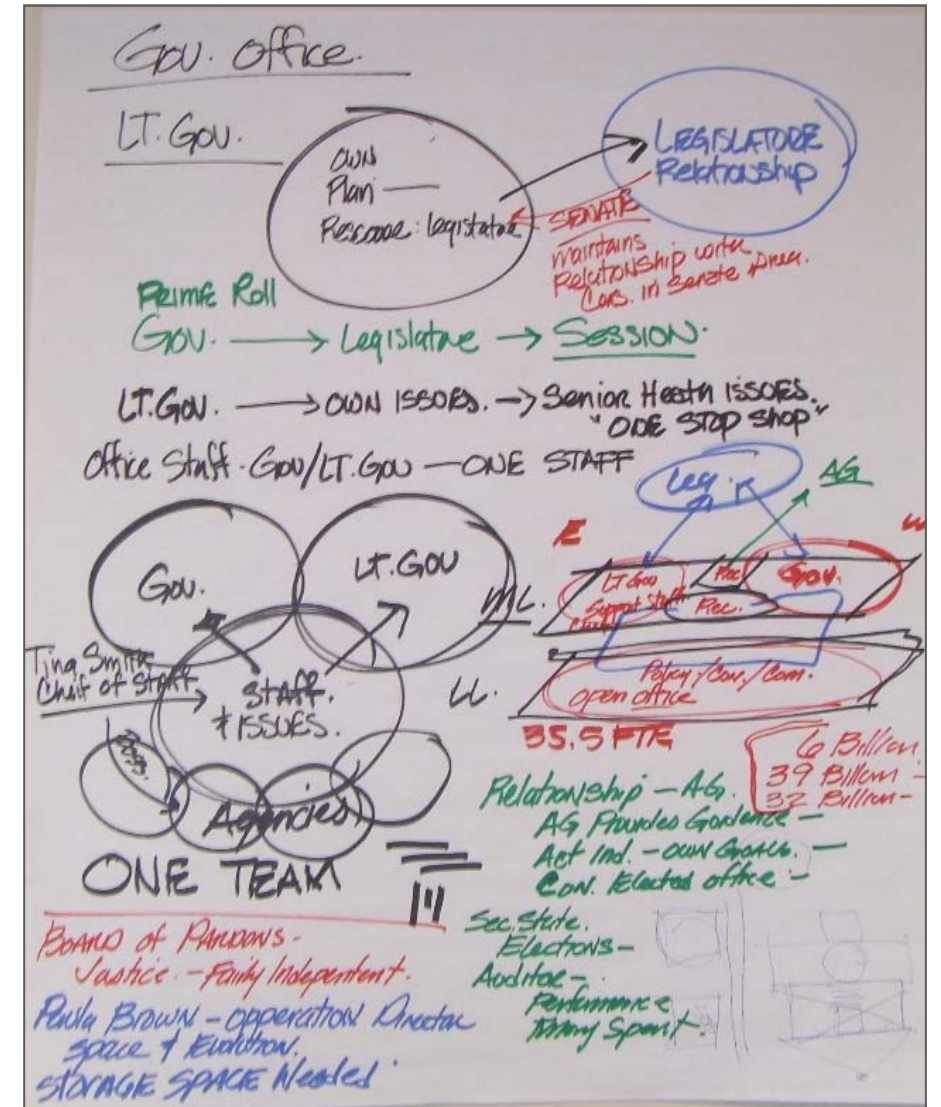 Gov. Office.
LT. Gov.
OWN
Plan —
Resource: Legislature
LEGISLATORE
Relationship
SENATE
maintains
Relationship with
in Senate
PRIME Roll
Gov. → Legislatne → SESSION.
LT. Gov. → OWN ISSUES. → Senior Heath ISSUES.
"ONE STOP Shop"
Office Staff - Gov/LT. Gov — ONE STAFF
Leg.
AG
E
W
Gov.
LT. Gov
ML.
LT Gov
Support Staff
Rec.
Gov.
Rec.
Tina Smith
Chief of Staff
STAFF.
+ ISSUES.
LL.
Policy/Con./Com.
open office
35.5 FTE
6 Billion
39 Billion -
32 Billion -
Agencies
ONE TEAM
Relationship - AG.
AG Provides Gordence -
Act Ind. - OWN GOALS. -
Con. Elected office -
Sec. State.
Elections -
Auditor -
Performance
Money Spent.
BOARD of PARDONS -
Justice. - Fairly Independent.
Paula Brown - opperation Director
Space & Evolution.
STORAGE SPACE Needed